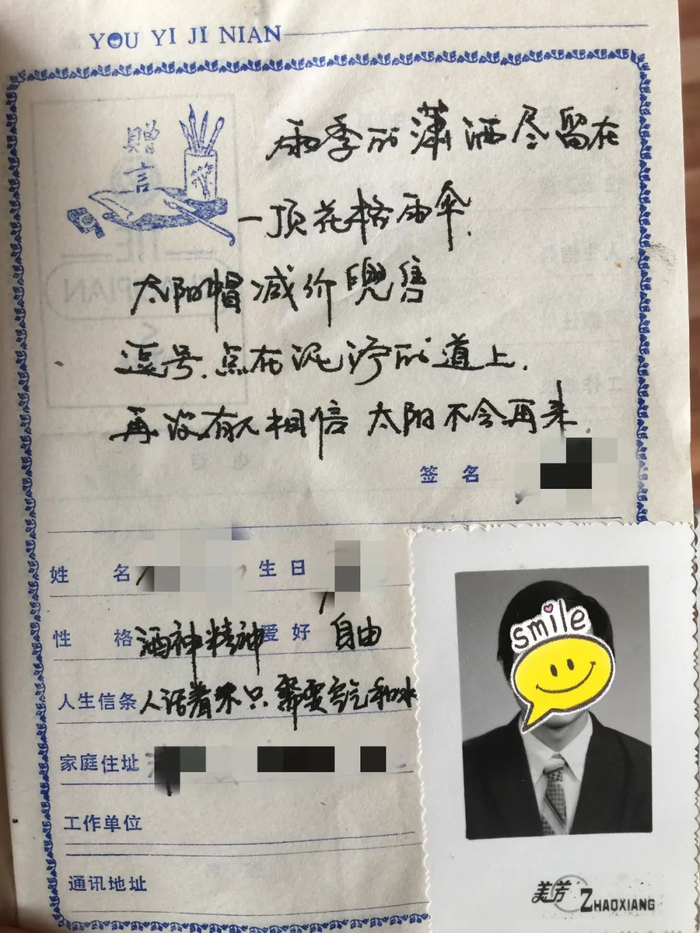 YOU YI JI NIAN
赠言
雨季的潇洒尽留在
一顶花格雨伞.
太阳帽减价兜售
逗号.点在泥泞的道上.
再没有人相信 太阳不会再来.
签名
姓名 生日
性格 酒神精神 爱好 自由
人生信条 人活着不只需要空气和水
家庭住址
工作单位
通讯地址
smile
美芳 ZHAOXIANG